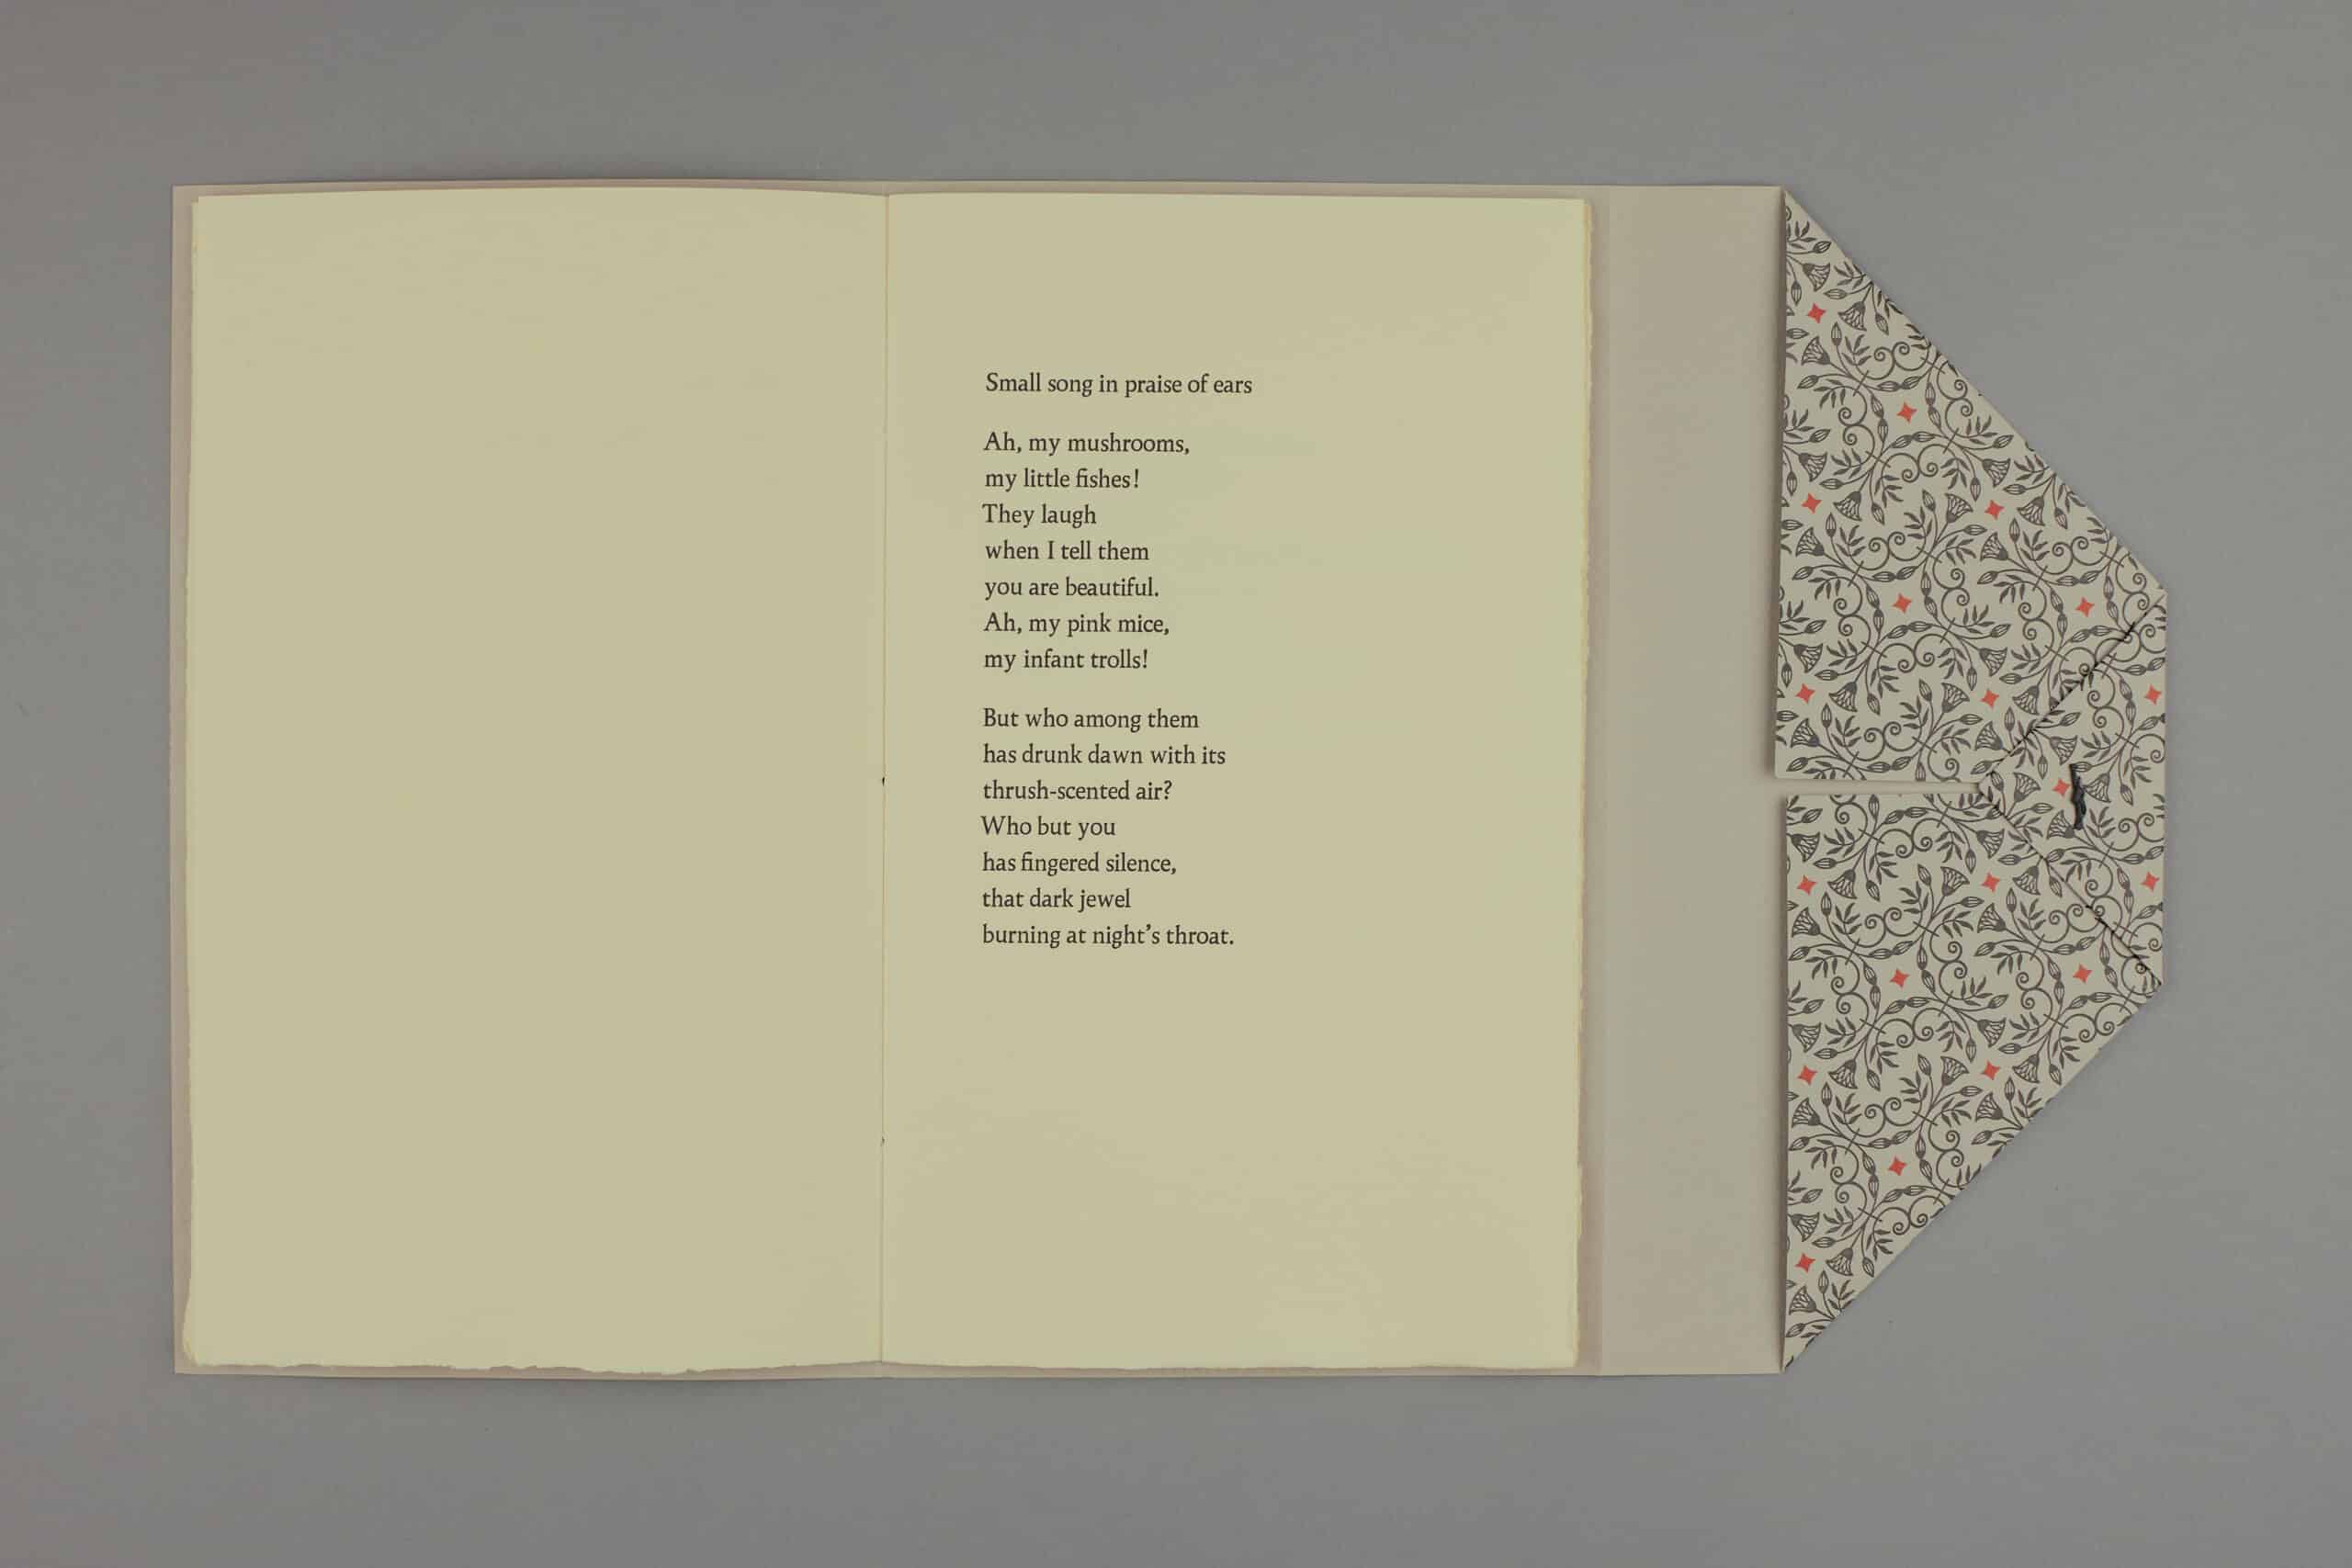 Small song in praise of ears
Ah, my mushrooms,
my little fishes!
They laugh
when I tell them
you are beautiful.
Ah, my pink mice,
my infant trolls!
But who among them
has drunk dawn with its
thrush-scented air?
Who but you
has fingered silence,
that dark jewel
burning at night’s throat.